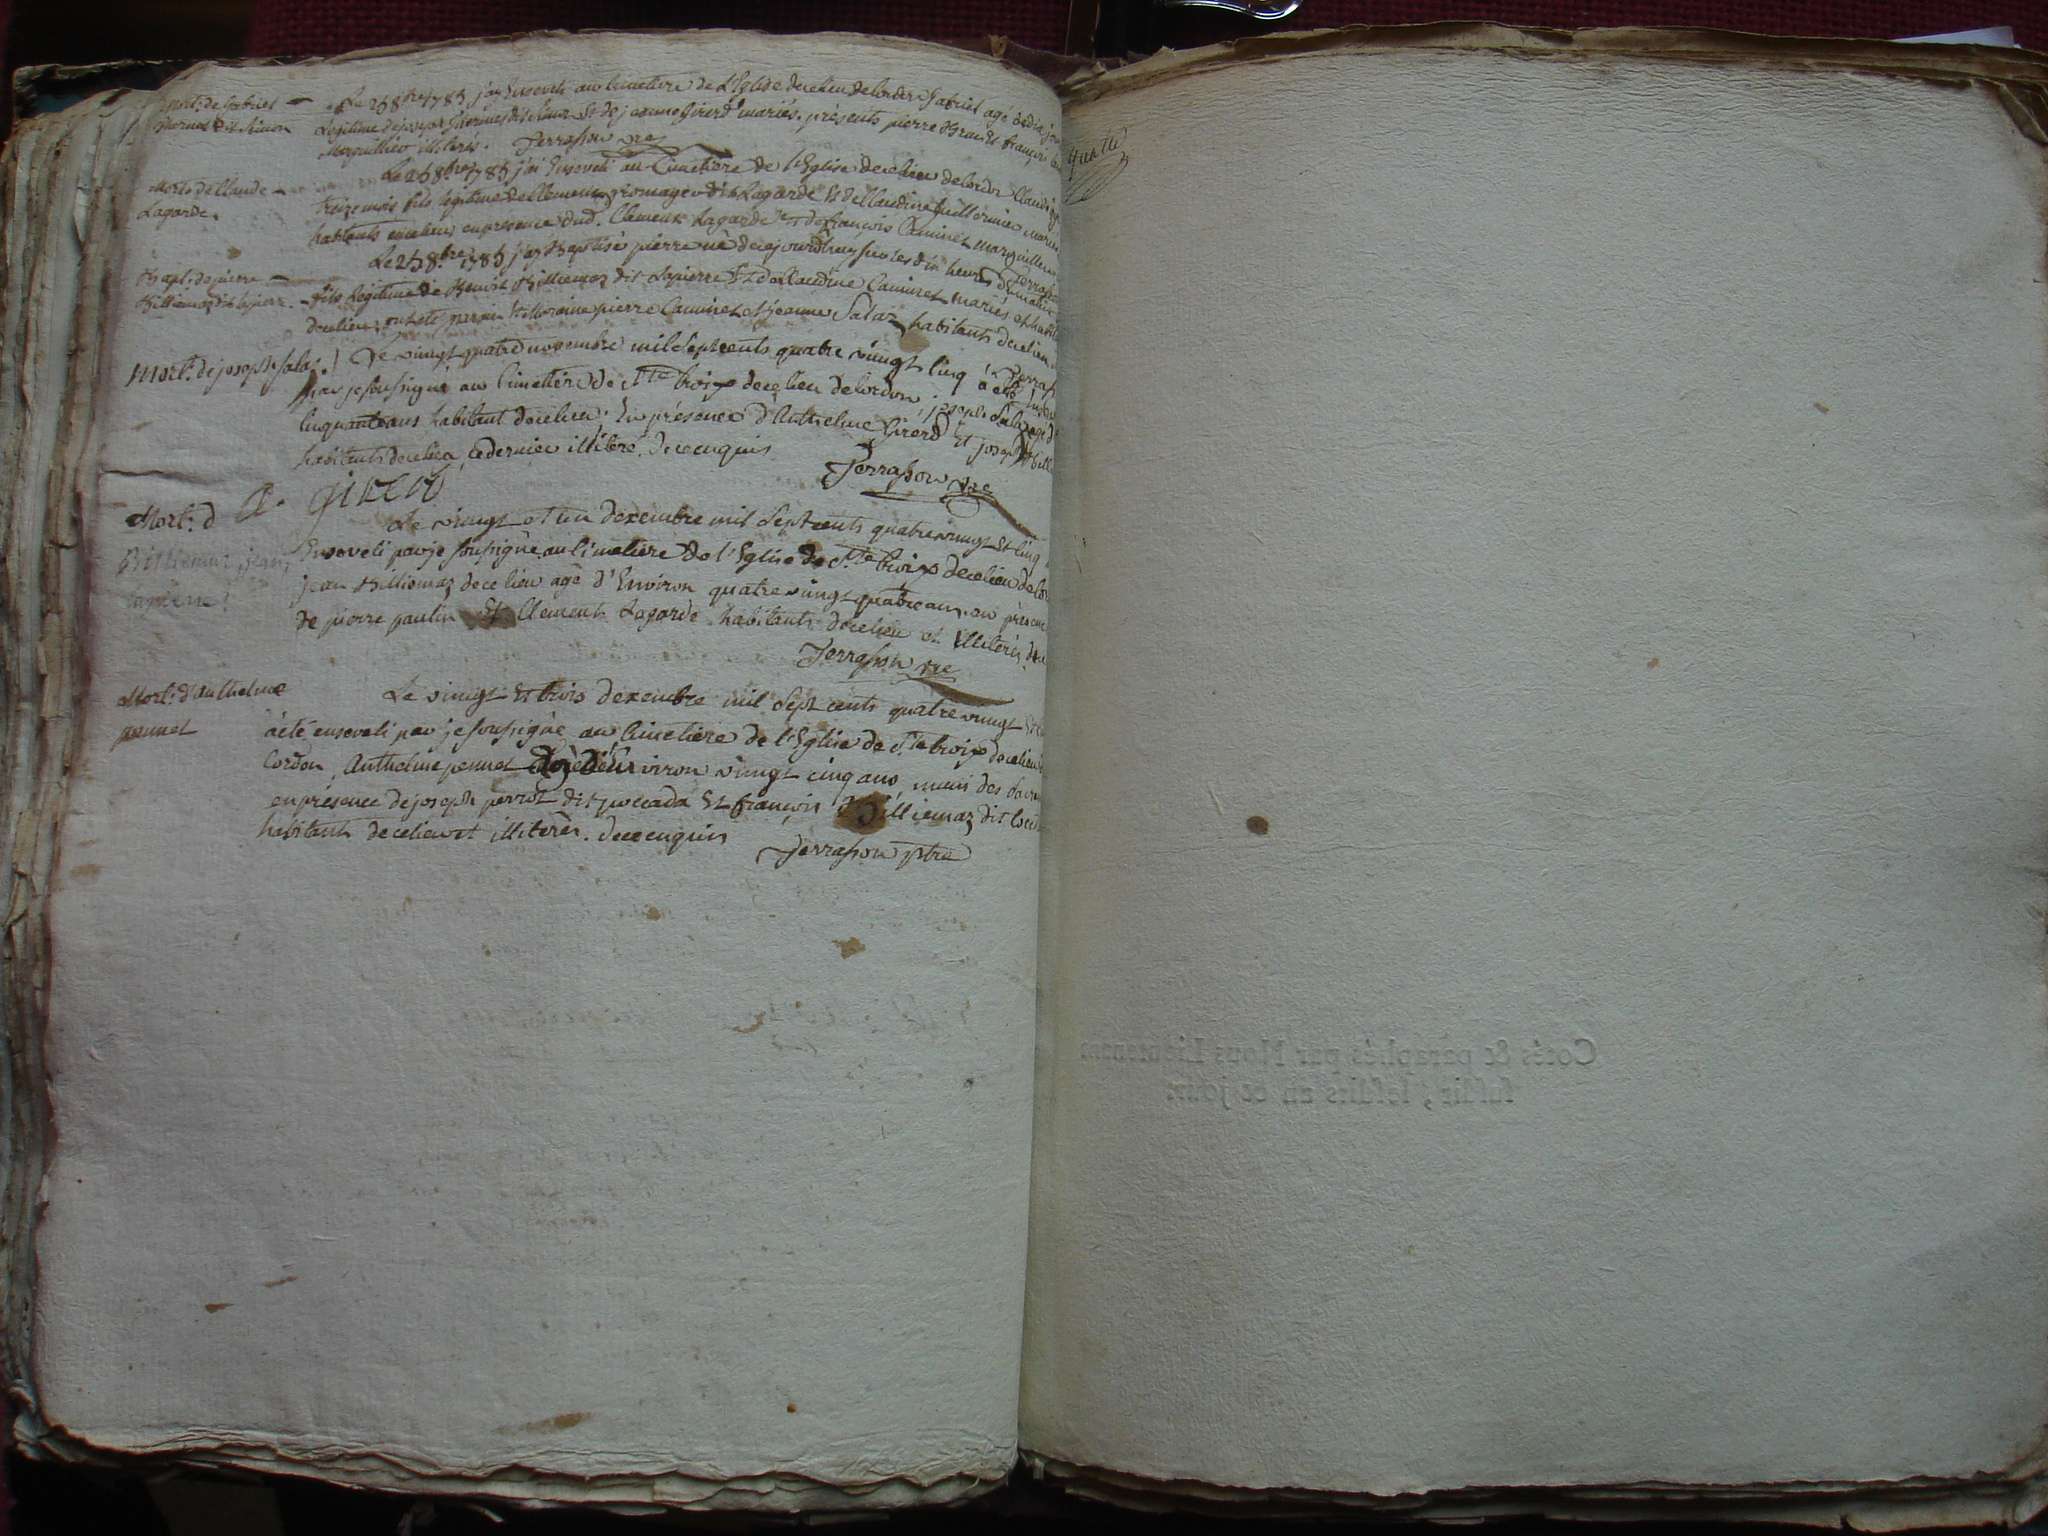 mort: de Gabriel
thermes dit simon
Le 26 8bre 1785 j'ay Enseveli au Cimetiere de L'Eglise decelieu deCordon Gabriel agé de dix jours
Legitime de joseph thermes dit simon Et de jeanne Girerd mariés. présents pierre Brun Et françois
Marguillier illiterés. Terrasson ptre
Mort: de Claude
Lagarde.
Le 26 8bre 1785 j'ai Enseveli au Cimetiere de l'Eglise decelieu deCordon Claude agé
treize mois fils legitime de Clement gromager dit Lagarde Et de Claudine guillermier mariés
habitants encelieu en presence dud. Clement Lagarde Et de françois Caminet marguillier
Bapt: de pierre
Billiemaz dit lapierre.
Le 25 8bre 1785 j'ay Baptisé pierre né decejourdhuy sur les dix heures du matin
fils legitime de Benoit Billiemaz dit Lapierre Et de Claudine Caminet mariés et habitants
decelieu, ont eté parrain Et Marraine pierre Caminet Et jeanne Salaz habitants decelieu
Mort: de joseph salaz.
Le vingt quatre novembre mil sept cents quatre vingt Cinq à eté
par je soussigné au Cimetiere de Ste Croix decelieu deCordon joseph Salaz agé de
Cinquante ans habitant decelieu; En présence d'Anthelme Girerd Et joseph
habitants decelieu, ce dernier illiteré. de ce enquis
Terrasson ptre
A. Girerd
Mort: d
Billiemaz, jean,
lapierre.
Le vingt et un dexembre mil sept cents quatre vingt Et Cinq
Enseveli par je soussigné au Cimetiere de l'Eglise de Ste Croix decelieu de Cor
jean Billiemaz decelieu agé d'Environ quatre vingt quatre ans en présence
de pierre pautin Et Clement Lagarde habitants decelieu et illiterés
Terrasson ptre
Mort: d'Anthelme
pennet
Le vingt Et trois dexembre mil sept cents quatre vingt
à été enseveli par je soussigné au Cimetiere de l'Eglise de Ste Croix decelieu
Cordon, Anthelme pennet agé d'Environ vingt cinq ans, muni des
en présence de joseph perrot dit poccada Et françois Billiemaz dit
habitants decelieu et illiterés. de ce enquis
Terrasson ptre
Cotés & paraphés par Nous Lieutenant
susdit, lesdits an & jour.